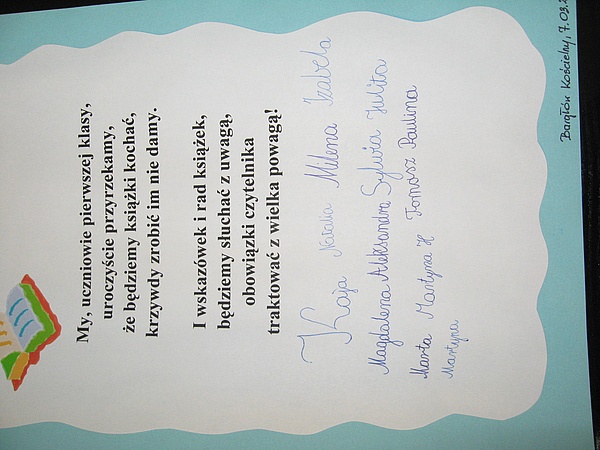 My, uczniowie pierwszej klasy,
uroczyście przyrzekamy,
że będziemy książki kochać,
krzywdy zrobić im nie damy.
I wskazówek i rad książek,
będziemy słuchać z uwagą,
obowiązki czytelnika
traktować z wielka powagą!
Kaja Natalia Milena Izabela
Magdalena Aleksandra Sylwia Julita
Marta Martyna H Tomasz Paulina
Martyna
Bargłów Kościelny, 7.03.